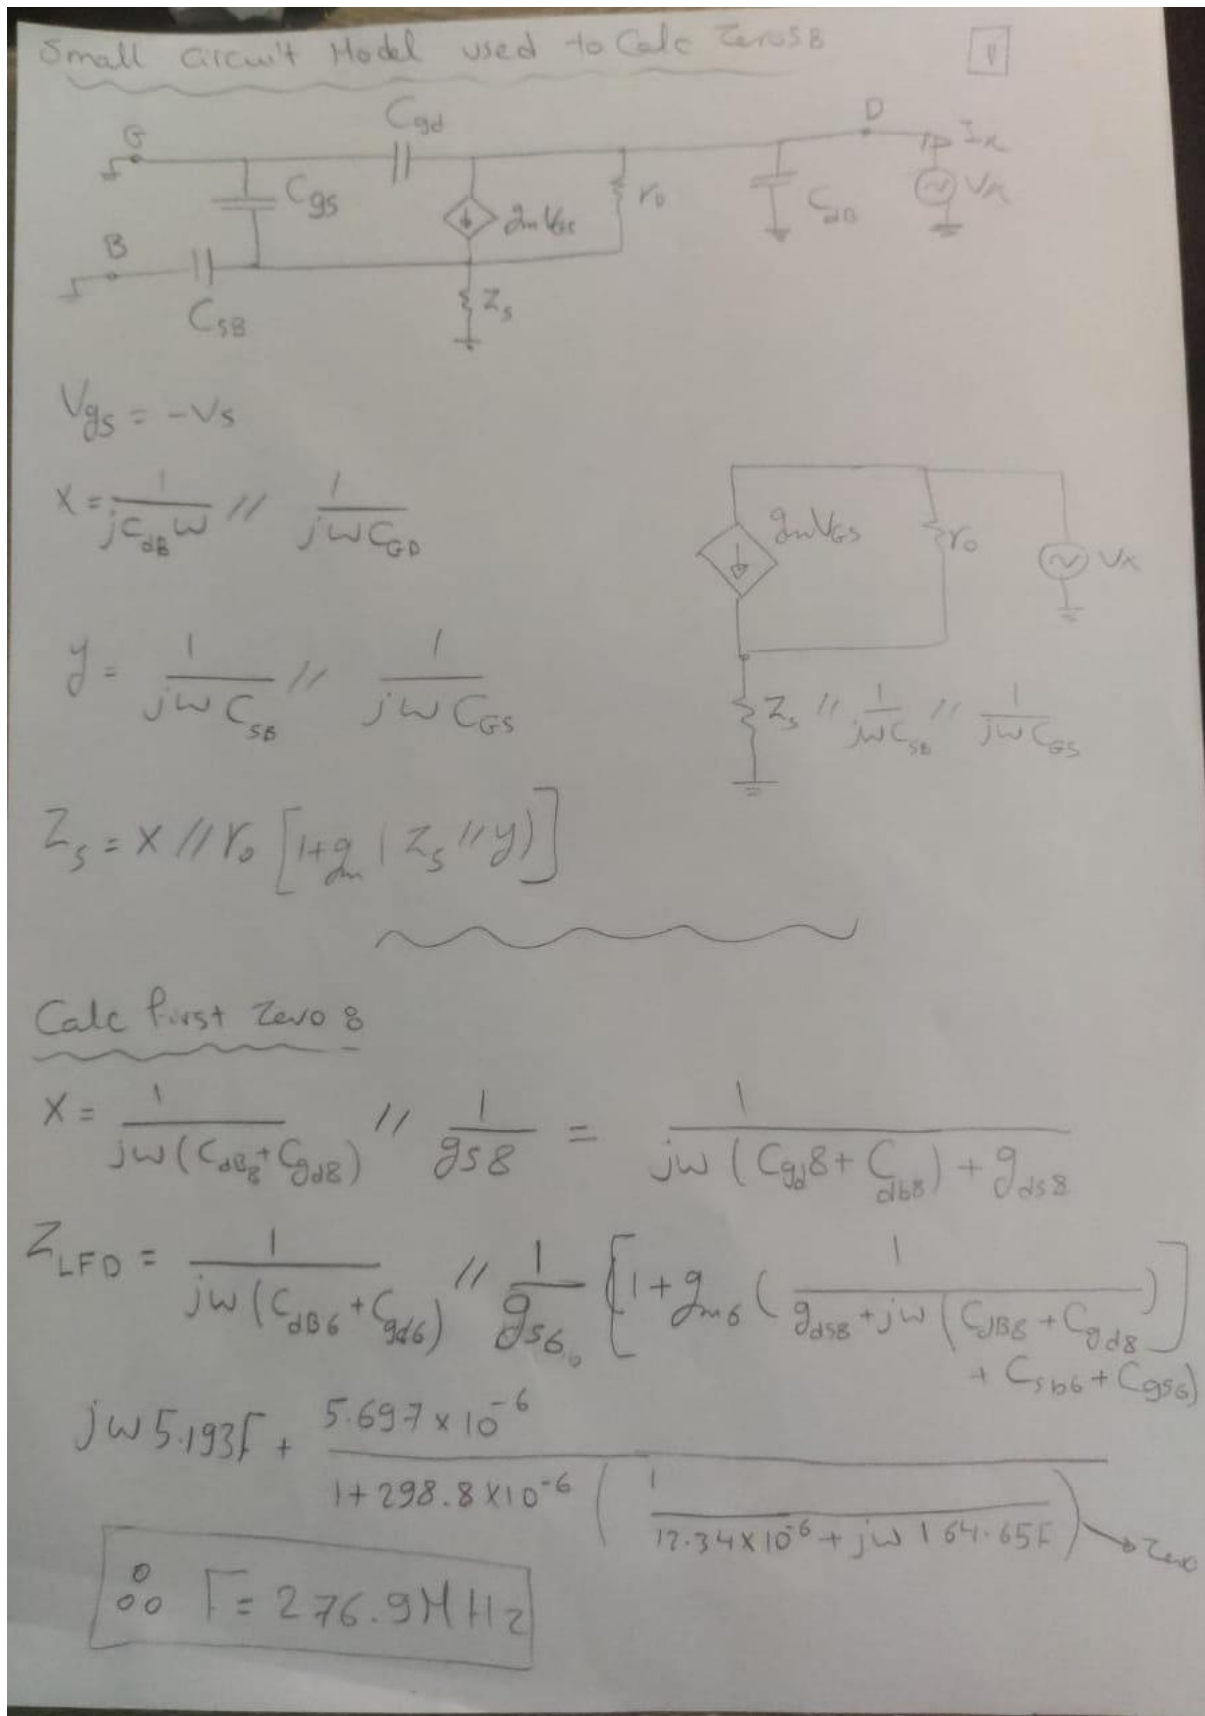 Small circuit Model used to Calc Zeros8
1
G
Cgd
D
Ix
Cgs
gmVGs
ro
CdB
Vx
B
CSB
Zs
Vgs = -Vs
X = 1/(jCdBω) // 1/(jωCGD)
gmVGS
ro
Vx
y = 1/(jωCSB) // 1/(jωCGS)
Zs // 1/(jωCSB) // 1/(jωCGS)
Zs = X // ro [1+gm ( Zs // y)]
Calc first Zero 8
X = 1/(jω(CdB8+Cgd8)) // 1/gs8 = 1/(jω(Cgd8+Cdb8)+gds8)
ZLFD = 1/(jω(CdB6+Cgd6)) // 1/gs6 [1+gm6 ( 1/(gds8+jω(CdB8+Cgd8 + Csb6+Cgs6)) )]
jω5.193F + 5.697×10^-6 / (1+298.8×10^-6 ( 1/(12.34×10^-6 + jω 164.65F) )) → Zero
∴ F = 276.9MHz